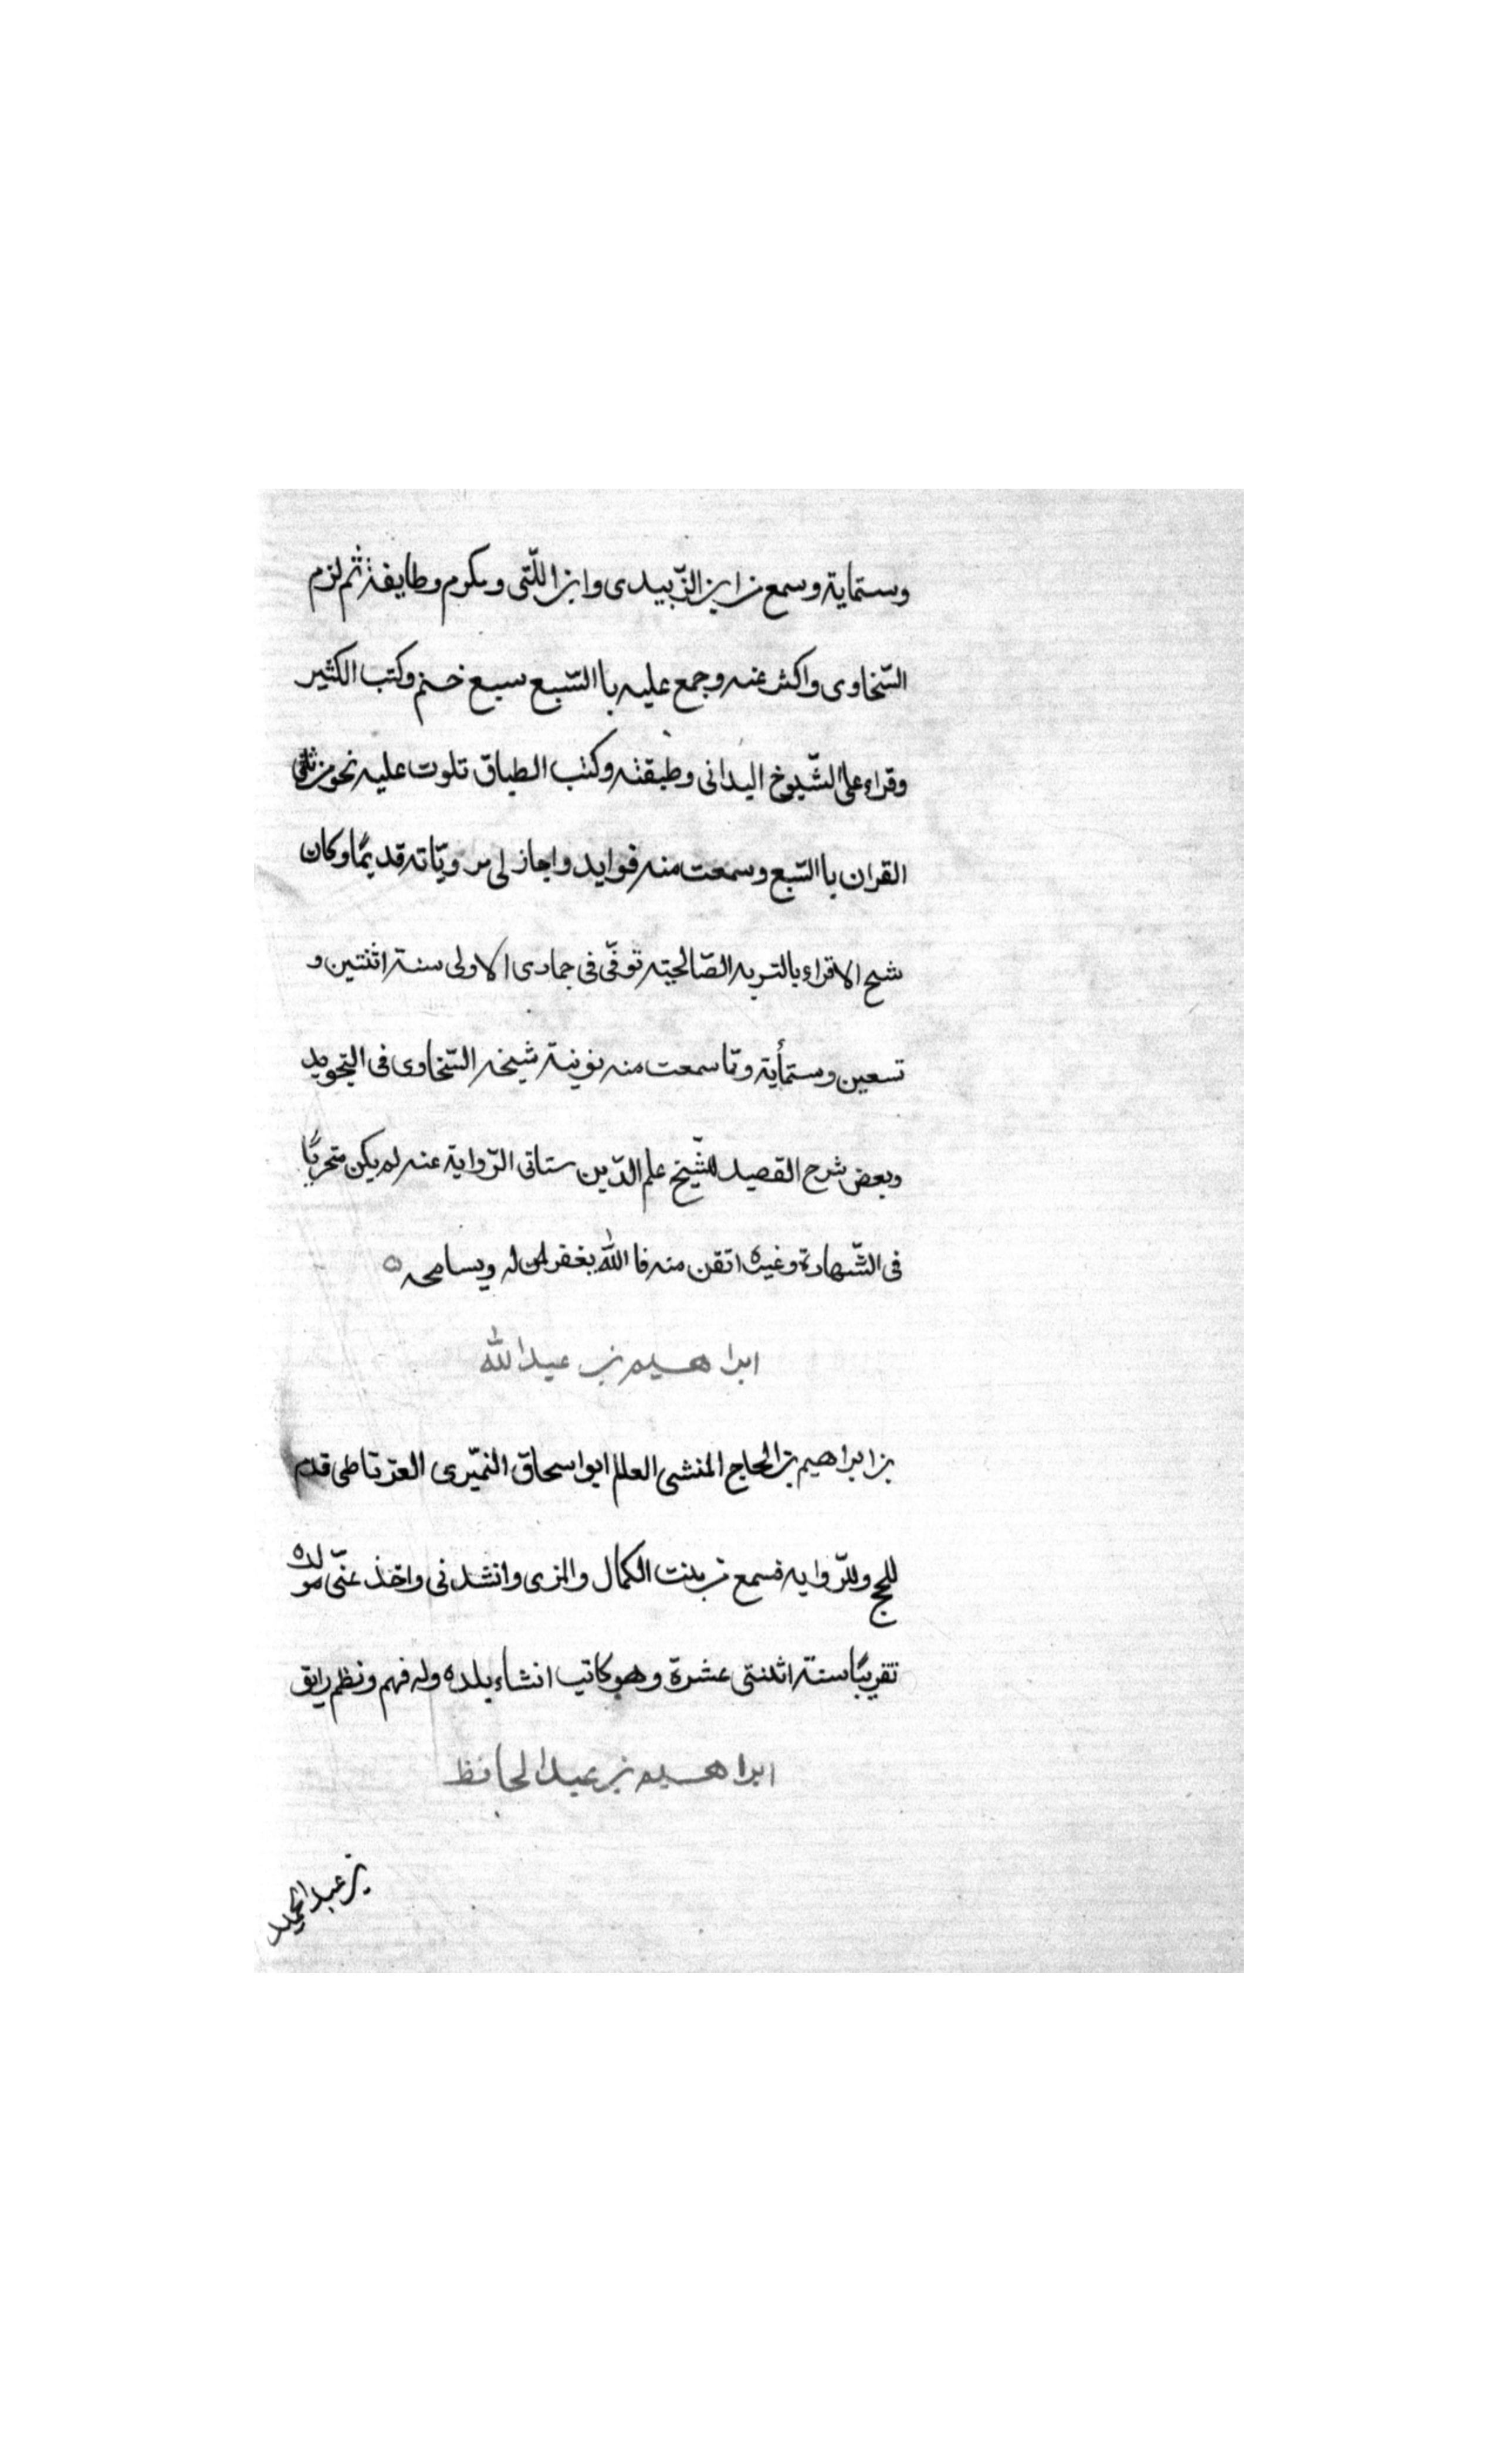 وستماية وسمع من ابن الزّبيدى وابن اللّتى ومكرم وطايفة ثم لزم
السّخاوى واكثر عنه وجمع عليه باالسّبع سبع ختم وكتب الكثير
وقراء على الشّيوخ اليدانى وطبقته وكتب الطباق تلوت عليه نحو من ثلثى
القران باالسّبع وسمعت منه فوايد واجاز لى مرويّاته قديمًا وكان
شيح الاقراء بالتربه الصّالحيّه توفّى فى جمادى الاولى سنة اثنتين و
تسعين وستمأية وممّا سمعت منه نونية شيخه السّخاوى فى التجويد
وبعض شرح القصيد للشّيخ علم الدّين ستاتى الرّواية عنه لم يكن متحريًا
فى الشّهادة وغيره اتقن منه فا الله يغفر له ويسامحه
ابراهيم بن عبد الله
بن ابراهيم بن الحاج المنشى العالم ابو اسحاق النميّرى الغرناطى قدم
للحج وللرّوايه فسمع من بنت الكمال والمزى وانشدنى واخذ عنّى مولده
تقريبًا سنة اثنتى عشرة وهو كاتب انشاء بلده وله فهم ونظم رايق
ابراهيم بن عبد الحافظ
بن عبد الحميد